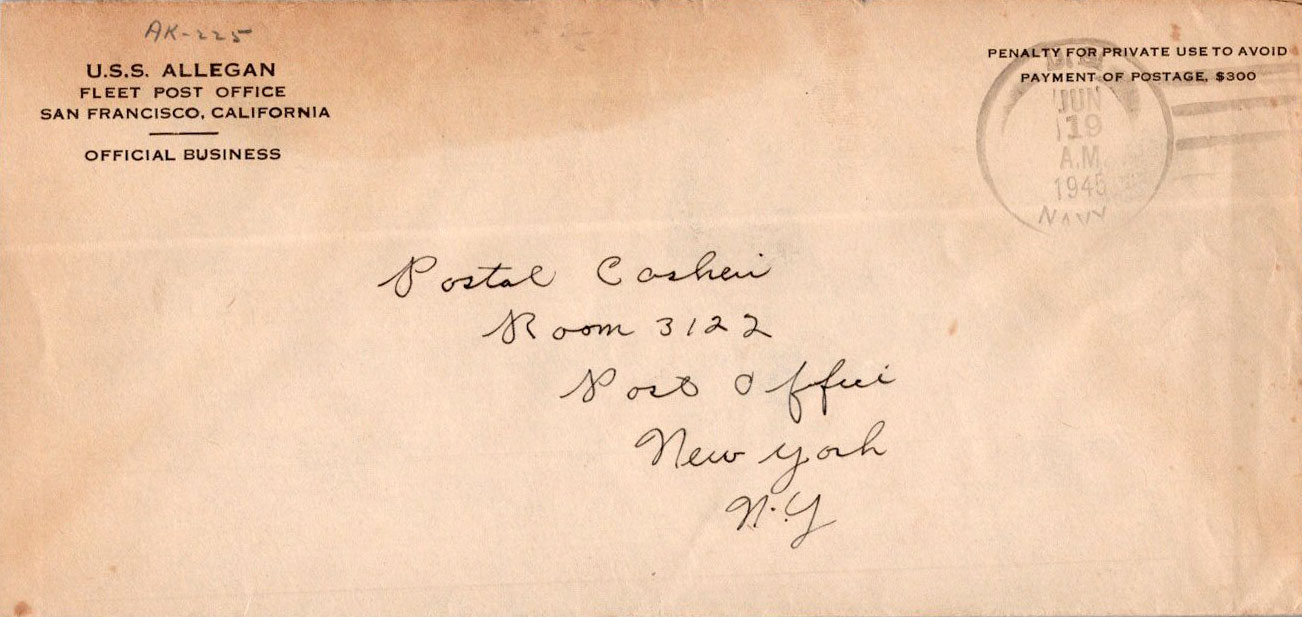 AK-225
U.S.S. ALLEGAN
FLEET POST OFFICE
SAN FRANCISCO, CALIFORNIA
OFFICIAL BUSINESS
PENALTY FOR PRIVATE USE TO AVOID
PAYMENT OF POSTAGE, $300
JUN
19
A.M.
1945
NAVY
Postal Cashier
Room 3122
Post Office
New York
N.Y